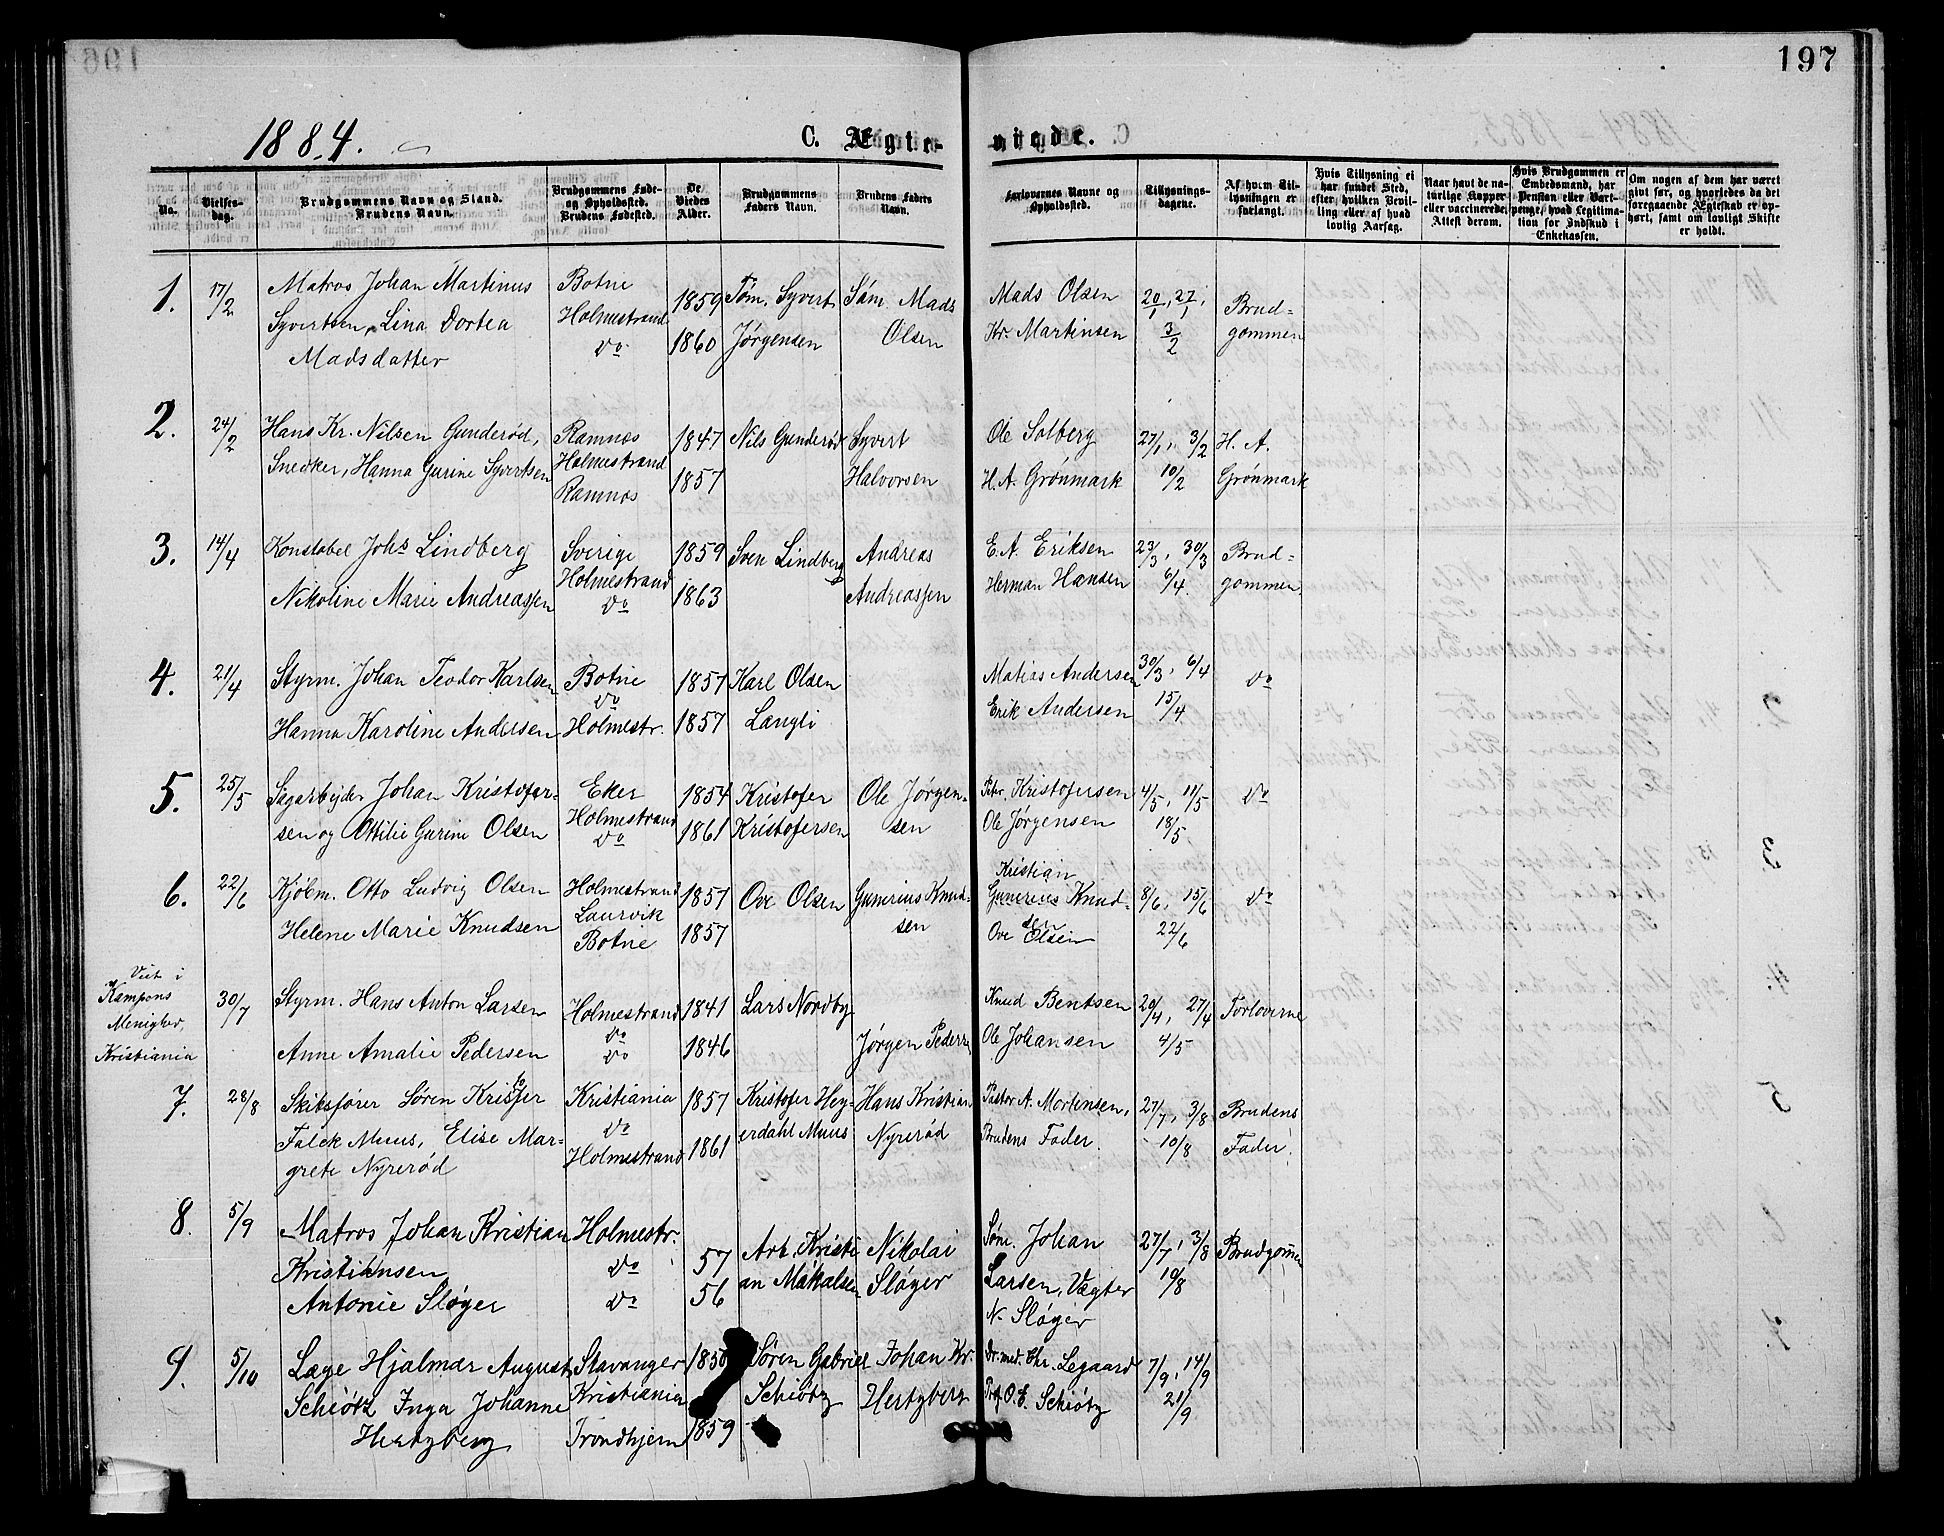 197
1884.
C. Ægteviede.
No.
Vielsesdag.
Brudgommens Navn og Stand.
Brudens Navn.
Brudgommens Føde- og Opholdssted.
Brudens Fødested.
De Viedes Alder.
Brudgommens Faders Navn.
Brudens Faders Navn.
Forlovernes Navne og Opholdssted.
Tillysningsdagene.
Af hvem Tillysningen er forlangt.
Hvis Tillysning ei har fundet Sted, efter hvilken Bevilling eller af hvad lovlig Aarsag.
Naar havt de naturlige Kopper eller vaccinerede, Attest derom.
Hvis Brudgommen er Embedsmand, har Pension eller Vartpenge, hvad Legitimation for Indskud i Enkekassen.
Om nogen af dem har været givt før, og hvorledes da det foregaaende Ægteskab er ophørt, samt om lovligt Skifte er holdt.
1. 17/2 Matros Johan Martinus Botne 1859 Tøm. Syvert Søm. Mads Mads Olsen 20/1, 27/1, Brud-
Syvertsen, Lina Dortea Holmestrand Jørgensen Olsen Kr. Martinsen 3/2 gommen
Madsdatter do 1860
2. 24/2 Hans Kr. Nilsen Gunderød, Ramnes 1847 Nils Gunderød Syvert Ole Solberg 27/1, 3/2 H. A.
Snedker, Hanna Gurine Syvertsen Holmestrand 1857 Halvorsen H. A. Grønmark 10/2 Grønmark
Ramnes
3. 14/4 Konstabel Johs Lindberg Sverige 1859 Sven Lindberg Andreas E. A. Eriksen 23/3, 30/3 Brud-
Holmestrand Herman Hansen 6/4 gommen
Nikoline Marie Andreassen do 1863 Andreassen
4. 21/4 Styrm. Johan Teodor Karlsen Botne 1857 Karl Olsen Matias Andersen 30/3, 6/4 do
do Erik Andersen 15/4
Hanna Karoline Andersen Holmestr. 1857 Langli
5. 25/5 Sagarbejder Johan Kristofer- Eker 1854 Kristofer Ole Jørgen- Petr. Kristofersen 4/5, 11/5 do
sen og Ottilie Gurine Olsen Holmestrand 1861 Kristofersen sen Ole Jørgensen 18/5
do
6. 22/6 Kjøbm. Otto Ludvig Olsen Holmestrand 1857 Ove Olsen Gunerius Knud- Kristian Gunerius Knud- 8/6, 15/6 do
Laurvik sen sen
Helene Marie Knudsen Botne 1857 Ove Olsen 22/6
Viet i
Kampens
Menighed,
Kristiania
30/7 Styrm. Hans Anton Larsen Holmestrand 1841 Lars Nordby Knud Bentsen 20/4, 27/4 Forloverne
do
Anne Amalie Pedersen do 1846 Jørgen Pedersen Ole Johansen 4/5
7. 28/8 Skibsfører Søren Kristofer Kristiania 1857 Kristofer Hey- Hans Kristian Pastor A. Mortensen, 27/7, 3/8 Brudens
Falck Muus, Elise Mar- do 1861 erdahl Muus Nyrerød Brudens Fader 10/8 Fader
grete Nyrerød Holmestrand
8. 5/9 Matros Johan Kristian Holmestr. 57 Arb. Kristi- Nikolai Søm. Johan 27/7, 3/8 Brudgommen
Kristiansen do an Mikalsen Sløger Larsen, Vægter 10/8
Antonie Sløger do 56 N. Sløger
9. 5/10 Læge Hjalmar August Stavanger Søren Gabriel Johan Kr. Dr. med. Chr. Legaard 7/9, 14/9
Schiøtz Inga Johanne Kristiania Schiøtz Hertzberg Prof. O. E. Schiøtz 21/9
Hertzberg Trondhjem 1859